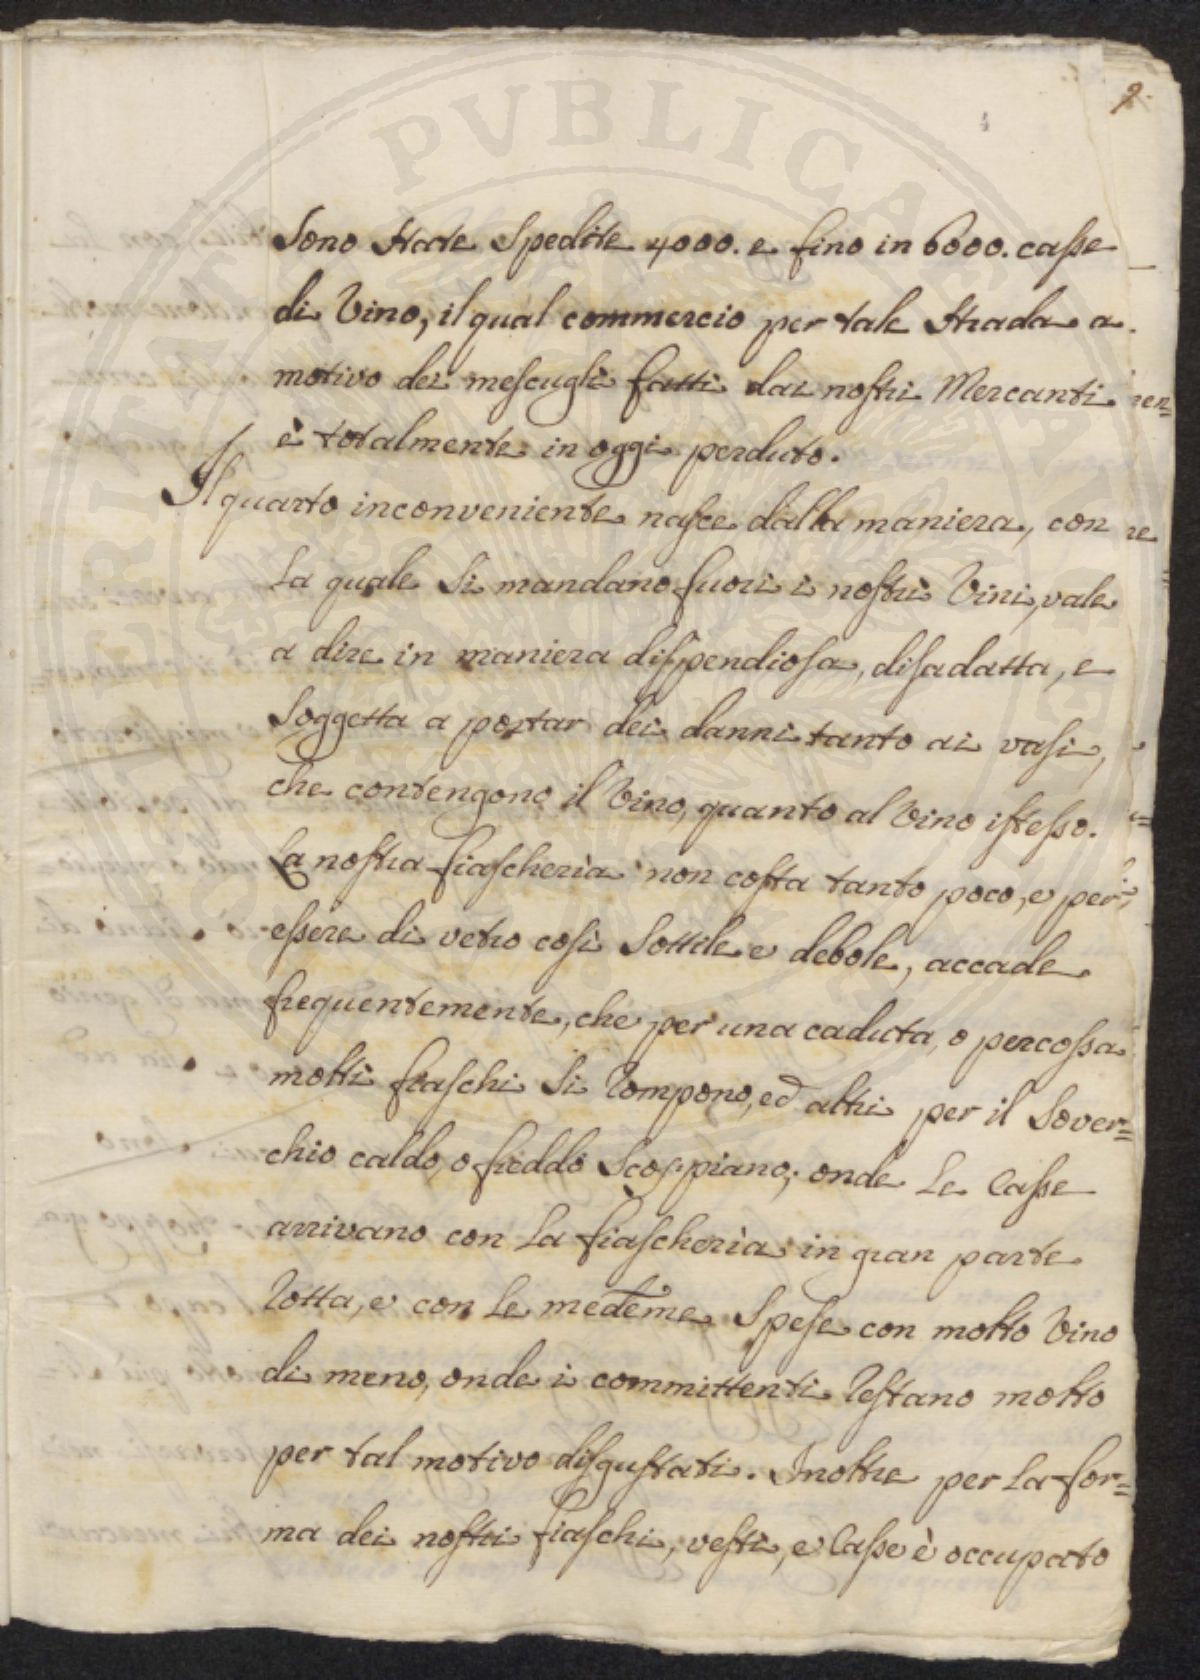 9.
Sono state spedite 4000. e fino in 6000. casse
di Vino, il qual commercio per tale strada a
motivo dei mescugli fatti dai nostri Mercanti
è totalmente in oggi perduto.
Il quarto inconveniente nasce dalla maniera, con
la quale si mandano fuori i nostri Vini, vale
a dire in maniera dispendiosa, disadatta, e
soggetta a portar dei danni tanto ai vasi,
che contengono il Vino, quanto al Vino istesso.
La nostra fiascheria non costa tanto poco, e per
essere di vetro così sottile e debole, accade
frequentemente, che per una caduta, o percossa
molti fiaschi si rompono, ed altri per il sover=
chio caldo, o freddo scoppiano; onde le Casse
arrivano con la fiascheria in gran parte
rotta, e con le medeme spese con molto Vino
di meno, onde i committenti restano molto
per tal motivo disgustati. Inoltre per la for=
ma dei nostri fiaschi, vesti, e Casse è occupato